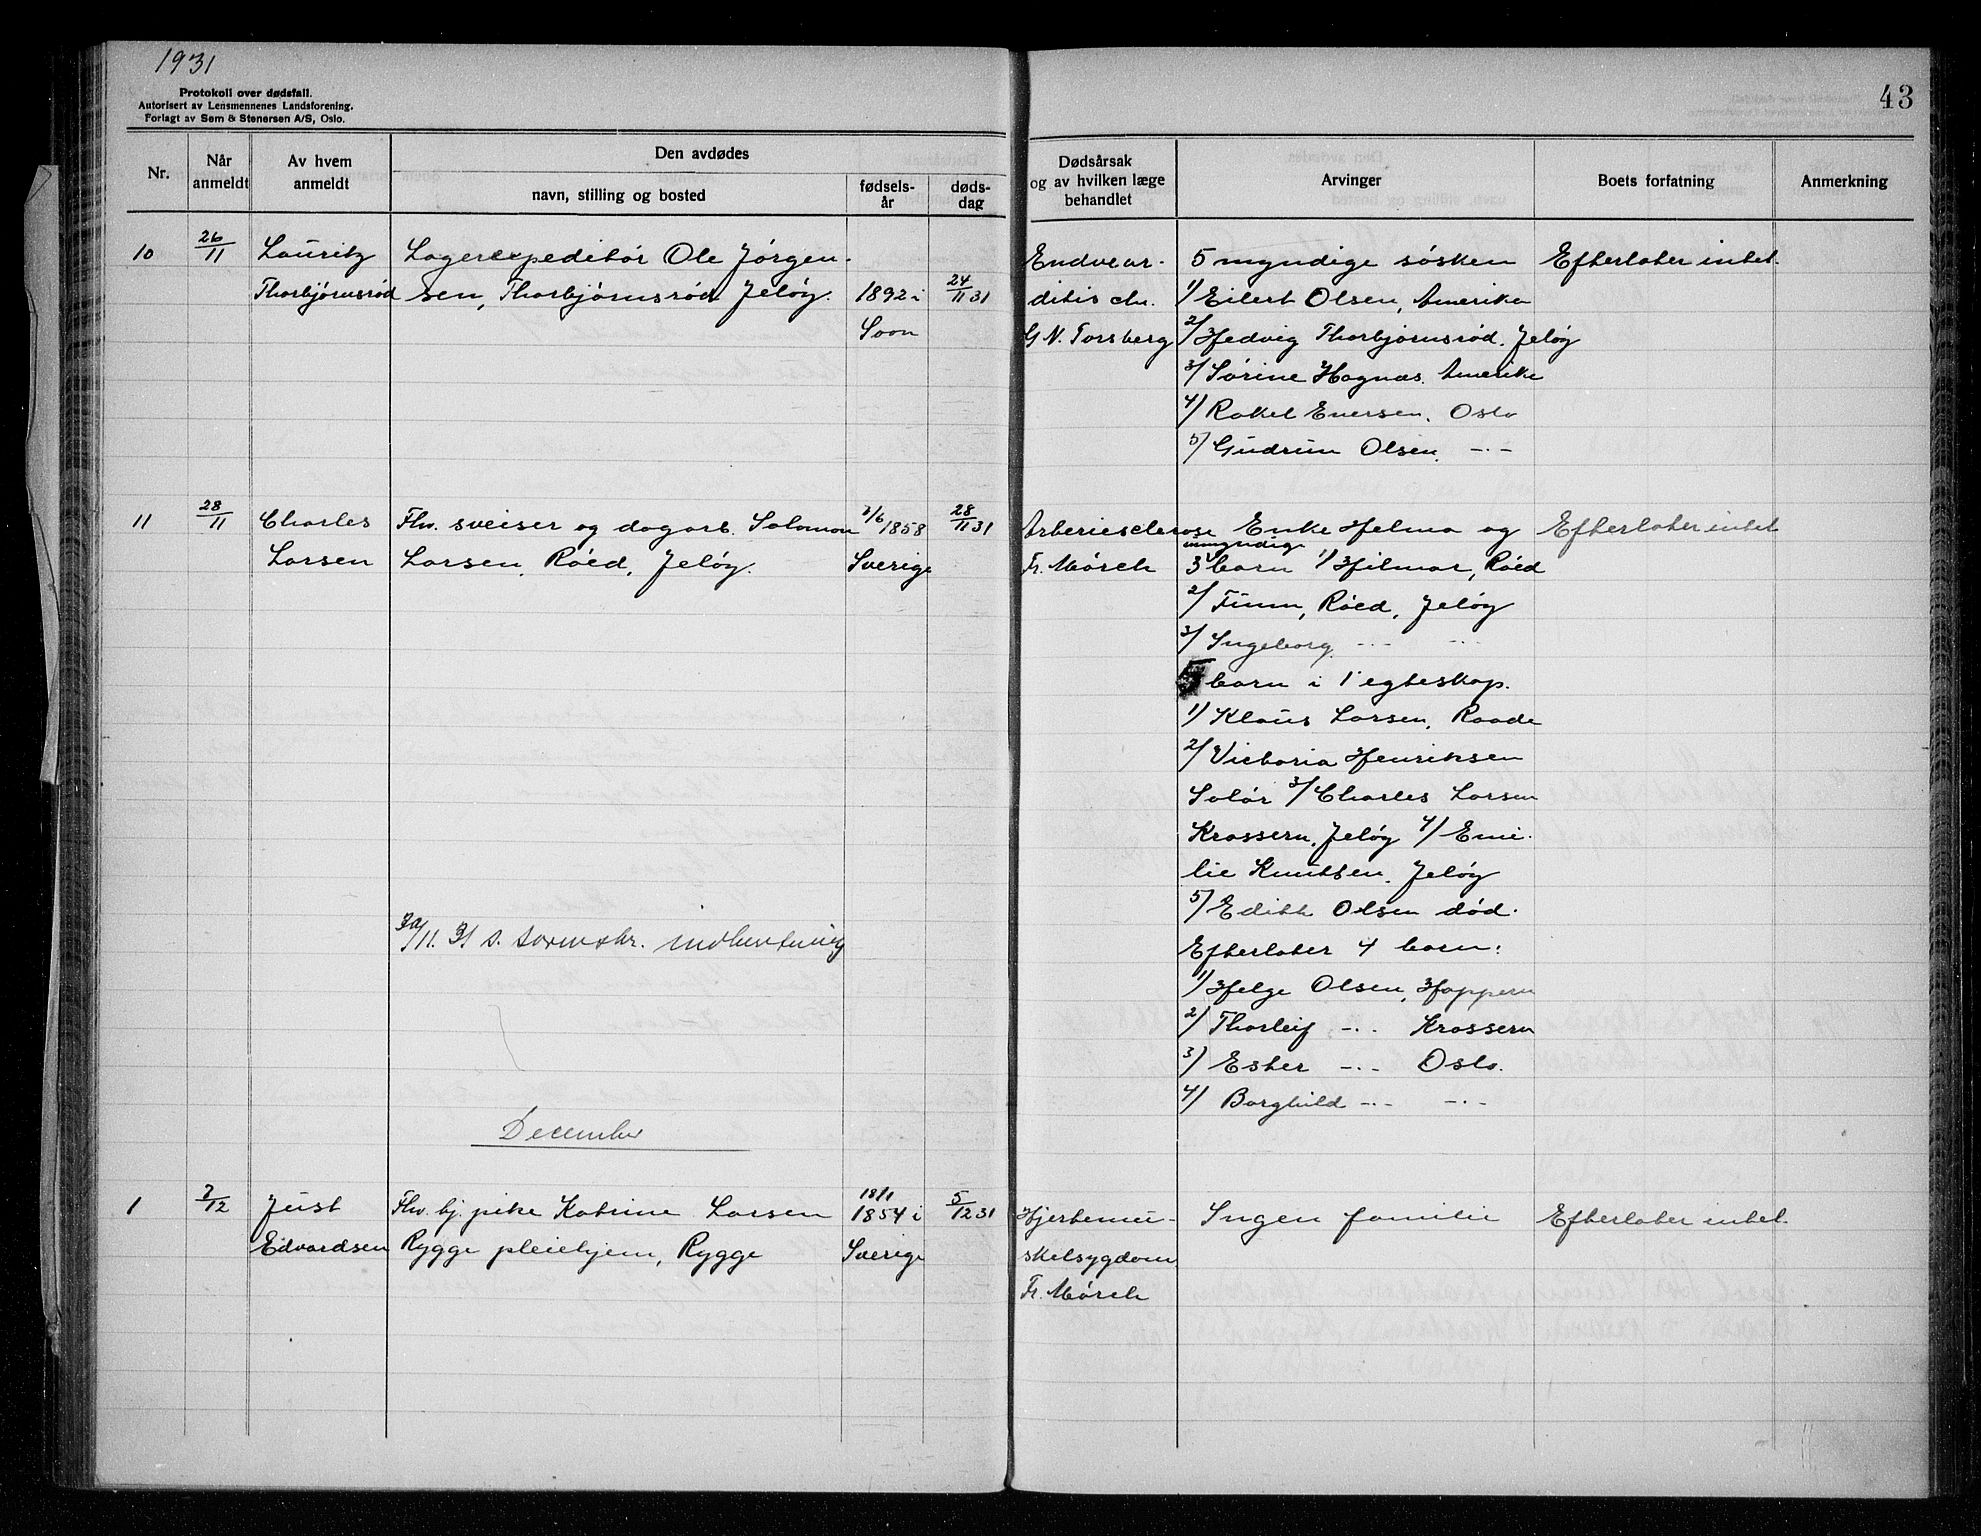 1931
Protokoll over dødsfall.
Autorisert av Lensmennenes Landsforening.
Forlagt av Sem & Stenersen A/S, Oslo.
43
Nr.
Når anmeldt
Av hvem anmeldt
Den avdødes
navn, stilling og bosted
fødsels-år
døds-dag
Dødsårsak og av hvilken læge behandlet
Arvinger
Boets forfatning
Anmerkning
10 26/11 Lauritz Lagerexpeditør Ole Jørgen-
Thorbjørnsrød sen, Thorbjørnsrød Jeløy. 1892 i 24/11 31
Soon
Endvear-
ditis chr.
G N. Torsberg
5 myndige søsken
1/ Eilert Olsen, Amerika
2/ Hedvig Thorbjørnsrød. Jeløy
3/ Sørine Hagnæs. Amerika
4/ Rakel Evensen, Oslo
5/ Gudrun Olsen, -·-
Efterlater intet.
11 28/11 Charles Fhv. sveiser og dagarb. Salomon /6 1858 28/11 31
Larsen Larsen, Røed, Jeløy. Sverige
Arteriesclerose
Fr. Mørch
Enke Helma og
umyndige
3 barn 1/ Hilmar, Røed
2/ Finn, Røed, Jeløy
3/ Ingeborg -·- -·-
5 barn i 1' egteskap.
1/ Klaus Larsen, Raade
2/ Victoria Henriksen
Solør 3/ Charles Larsen
Krossern, Jeløy 4/ Emi-
lie Knutsen, Jeløy
5/ Edith Olsen død.
Efterlater 4 barn:
1/ Helge Olsen, Hoppern
2/ Thorleif -·- Krossern
3/ Esther -·- Oslo.
4/ Borghild -·- -·-
Efterlater intet
30/11. 31 s.
December
1 7/12 Just Fhv. tj. pike Katrine Larsen 18/1 1854 i 5/12 31
Edvardsen Rygge pleiehjem, Rygge Sverige
Hjertemu-
skelsygdom
Fr. Mørch
Ingen familie
Efterlater intet.